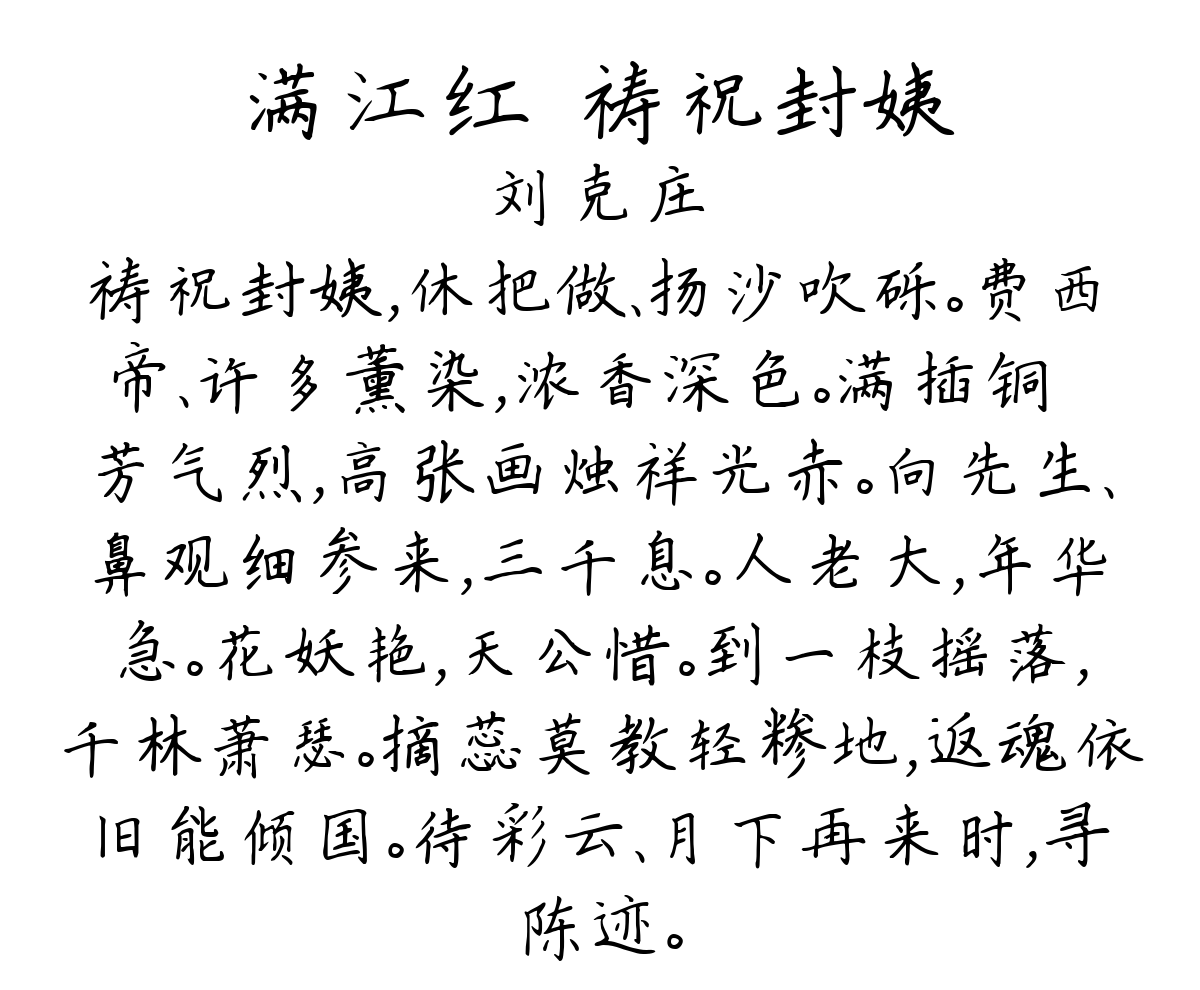 满江红 祷祝封姨
刘克庄
祷祝封姨,休把做、扬沙吹砾。费西
帝、许多薰染,浓香深色。满插铜
芳气烈,高张画烛祥光赤。向先生、
鼻观细参来,三千息。人老大,年华
急。花妖艳,天公惜。到一枝摇落,
千林萧瑟。摘蕊莫教轻糁地,返魂依
旧能倾国。待彩云、月下再来时,寻
陈迹。